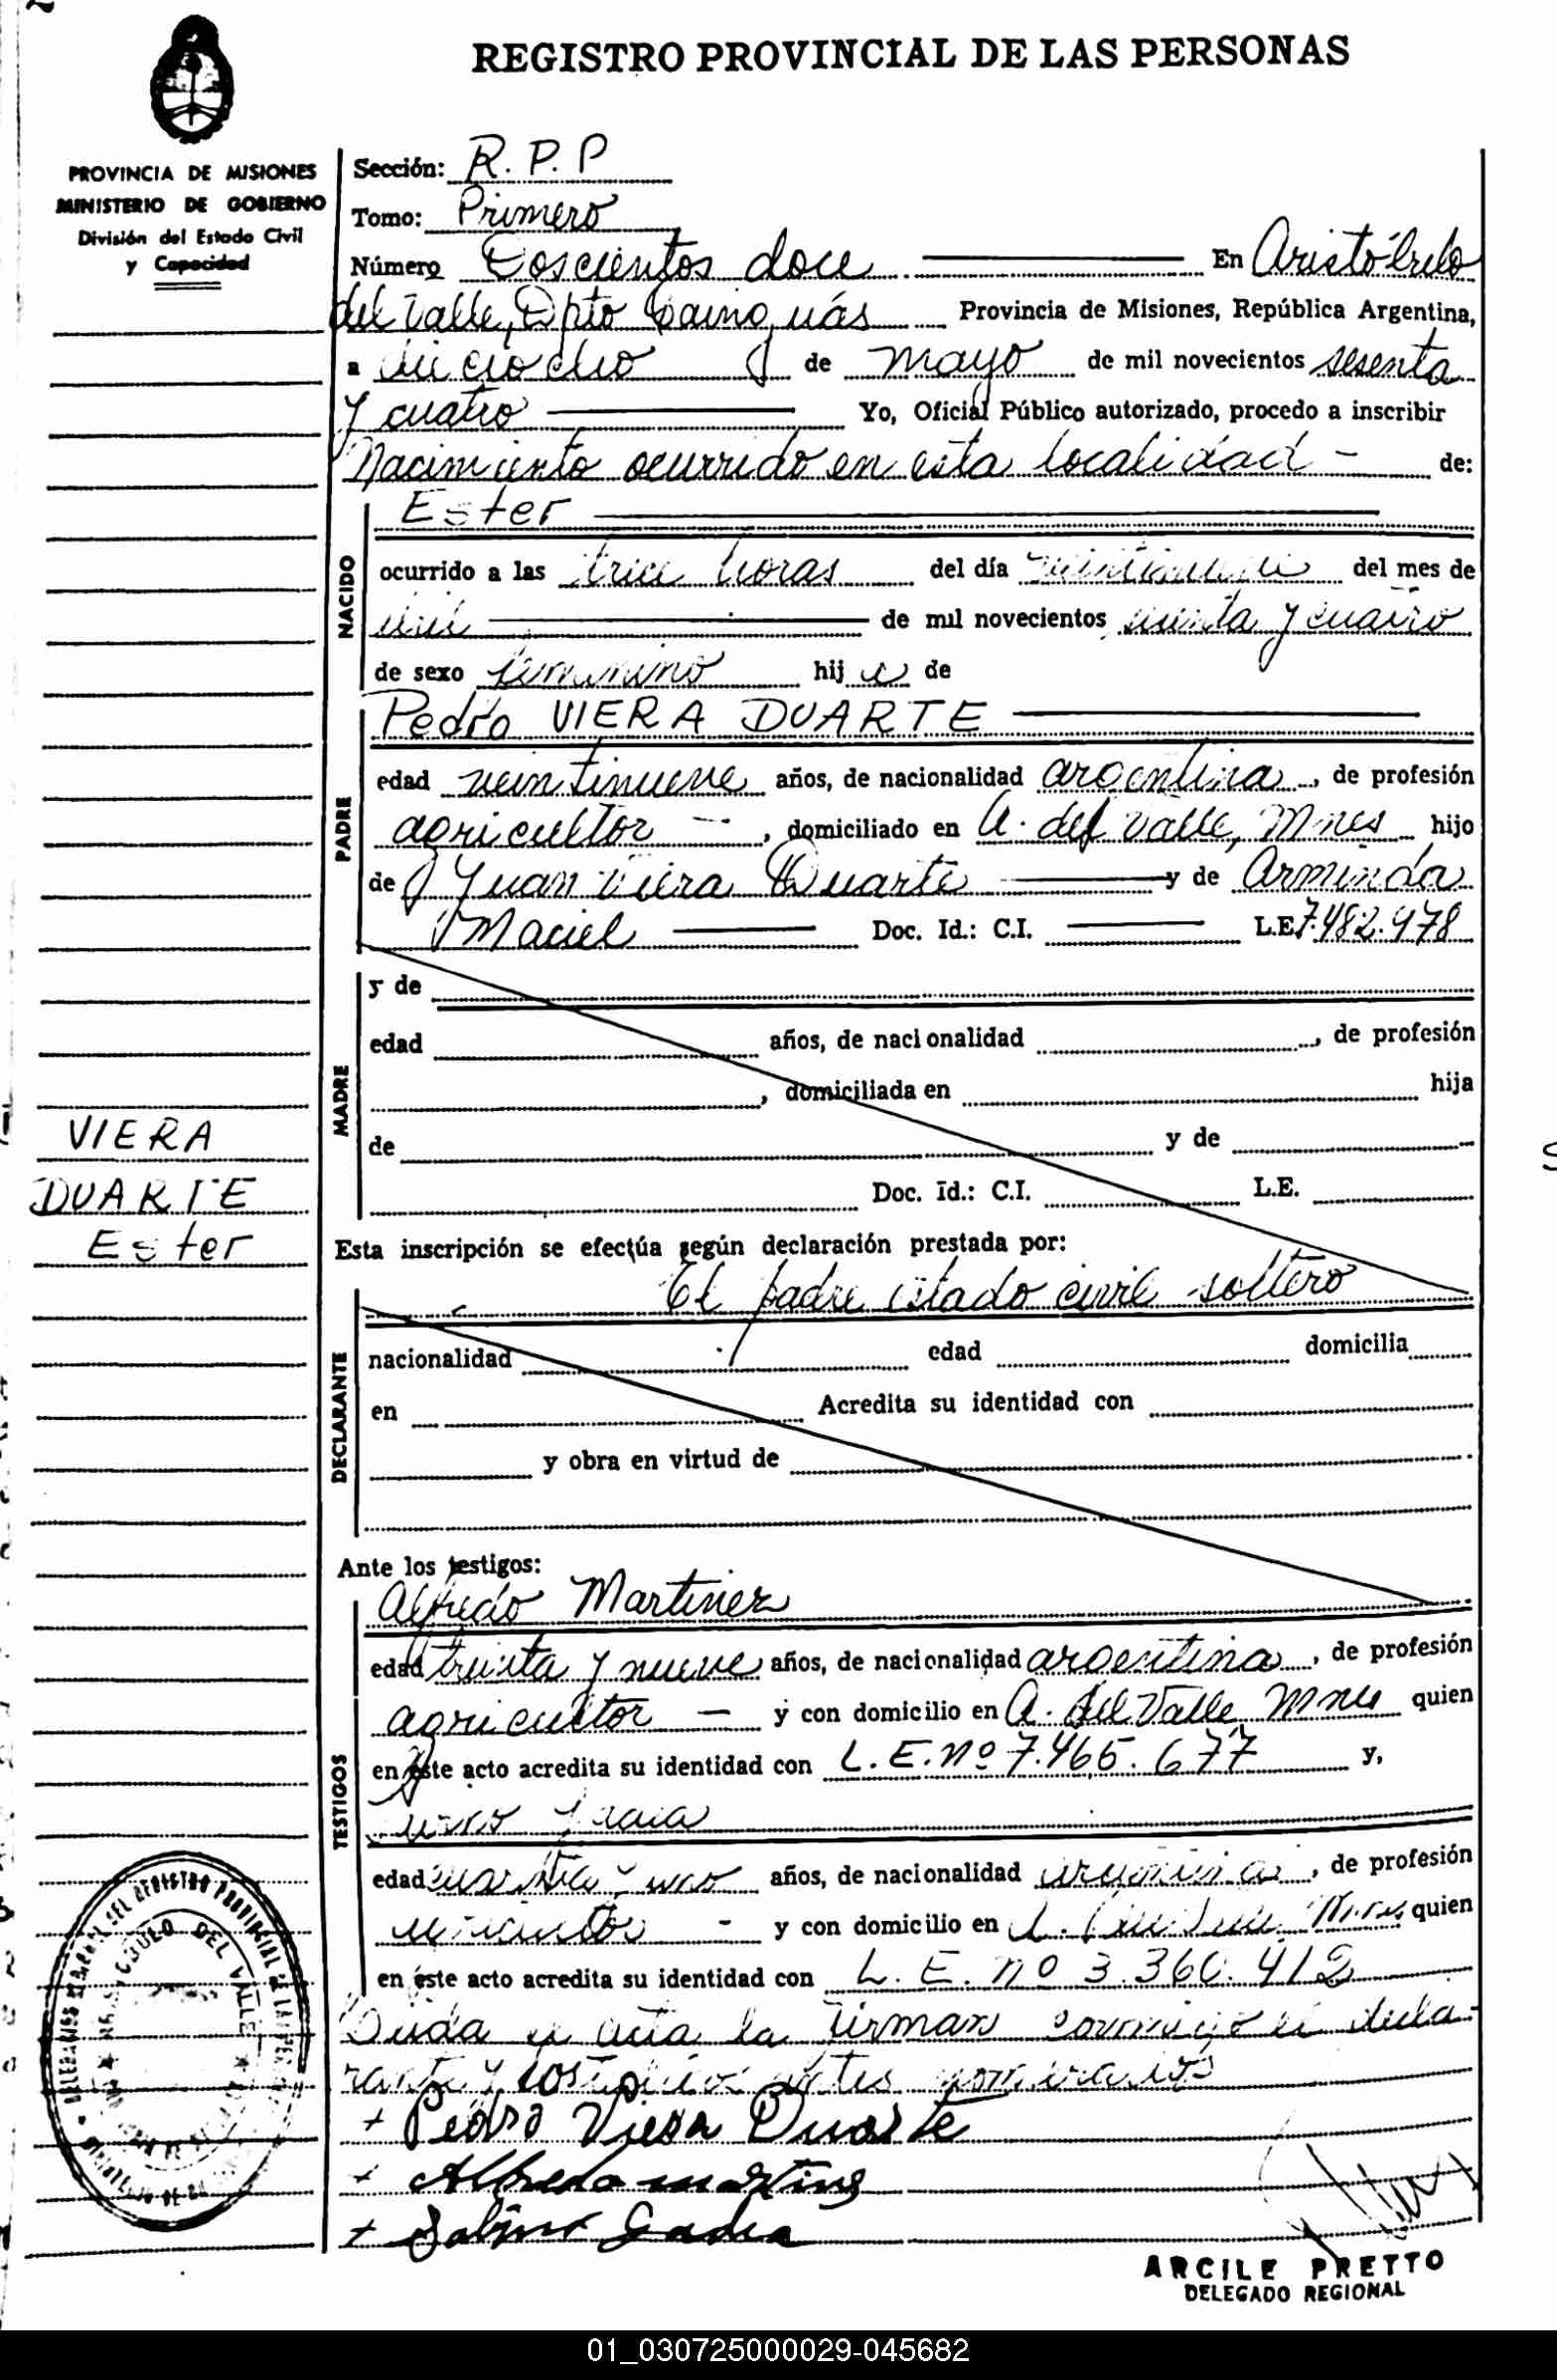 REGISTRO PROVINCIAL DE LAS PERSONAS
PROVINCIA DE MISIONES
MINISTERIO DE GOBIERNO
División del Estado Civil
y Capacidad
Sección: R. P. P
Tomo: Primero
Número Doscientos doce En Aristóbulo
del Valle, Dpto Cainguás Provincia de Misiones, República Argentina,
a dieciocho de mayo de mil novecientos sesenta
y cuatro Yo, Oficial Público autorizado, procedo a inscribir
Nacimiento ocurrido en esta localidad - de:
NACIDO
Ester
ocurrido a las trece horas del día del mes de
de mil novecientos y cuatro
de sexo femenino hij a de
PADRE
Pedro VIERA DUARTE
edad veintinueve años, de nacionalidad argentina, de profesión
agricultor -, domiciliado en A. del Valle, Mnes hijo
de Juan Viera Duarte y de Arminda
Maciel Doc. Id.: C.I. L.E. 7.482.978
MADRE
y de
edad años, de nacionalidad , de profesión
, domiciliada en hija
de y de
Doc. Id.: C.I. L.E.
VIERA
DUARTE
Ester
Esta inscripción se efectúa según declaración prestada por:
El padre estado civil soltero
DECLARANTE
nacionalidad edad domicilia
en Acredita su identidad con
y obra en virtud de
Ante los testigos:
TESTIGOS
Alfredo Martinez
edad treinta y nueve años, de nacionalidad argentina, de profesión
agricultor - y con domicilio en A. del Valle Mnes quien
en este acto acredita su identidad con L. E. Nº 7.465.677 y,
edad años, de nacionalidad argentina, de profesión
agricultor - y con domicilio en A. del Valle Mnes quien
en este acto acredita su identidad con L. E. nº 3.360.412
el acta la firman conmigo el decla
rante y los antes nombrados
+ Pedro Viera Duarte
+ Alfredo martines
+ Sabino
ARCILE PRETTO
DELEGADO REGIONAL
01_030725000029-045682